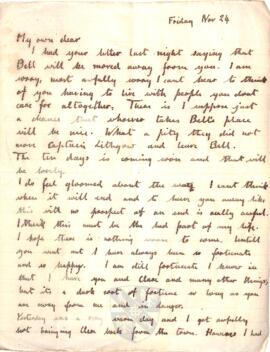 Friday Nov 24
My own dear
I had your letter last night saying that
Bell will be moved away from you. I am
sorry, most awfully sorry I can't bear to think
of you having to live with people you dont
care for altogether. There is I suppose just
a chance that whoever takes Bell's place
will be nice. What a pity they did not
move Captain Lithgow and leave Bell.
The ten days is coming soon and that will
be lovely.
I do feel gloomed about the war. I cant think
when it will end and to have you away like
this with no prospect of an end is really awful.
I think this must be the bad part of my life.
I hope there is nothing worse to come. Until
you went out I have always been so fortunate
and so happy. I am still fortunate I know in
that I have you and Clear and many other things
but its a dark sort of fortune so long as you
are away from me and in danger.
Yesterday was a very warm day and I got awfully
hot bringing Clear back from the town. However I had